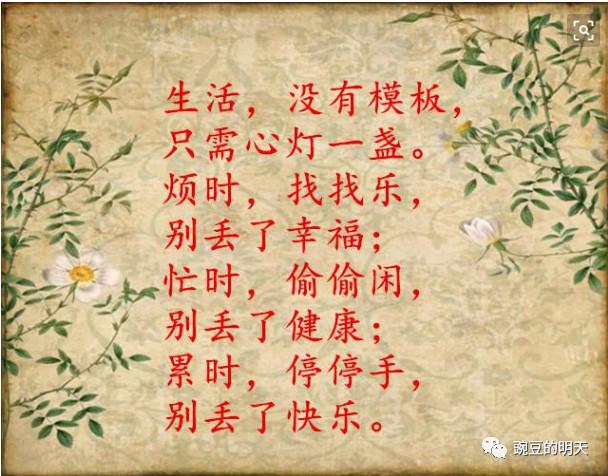 生活，没有模板，
只需心灯一盏。
烦时，找找乐，
别丢了幸福；
忙时，偷偷闲，
别丢了健康；
累时，停停手，
别丢了快乐。
豌豆的明天